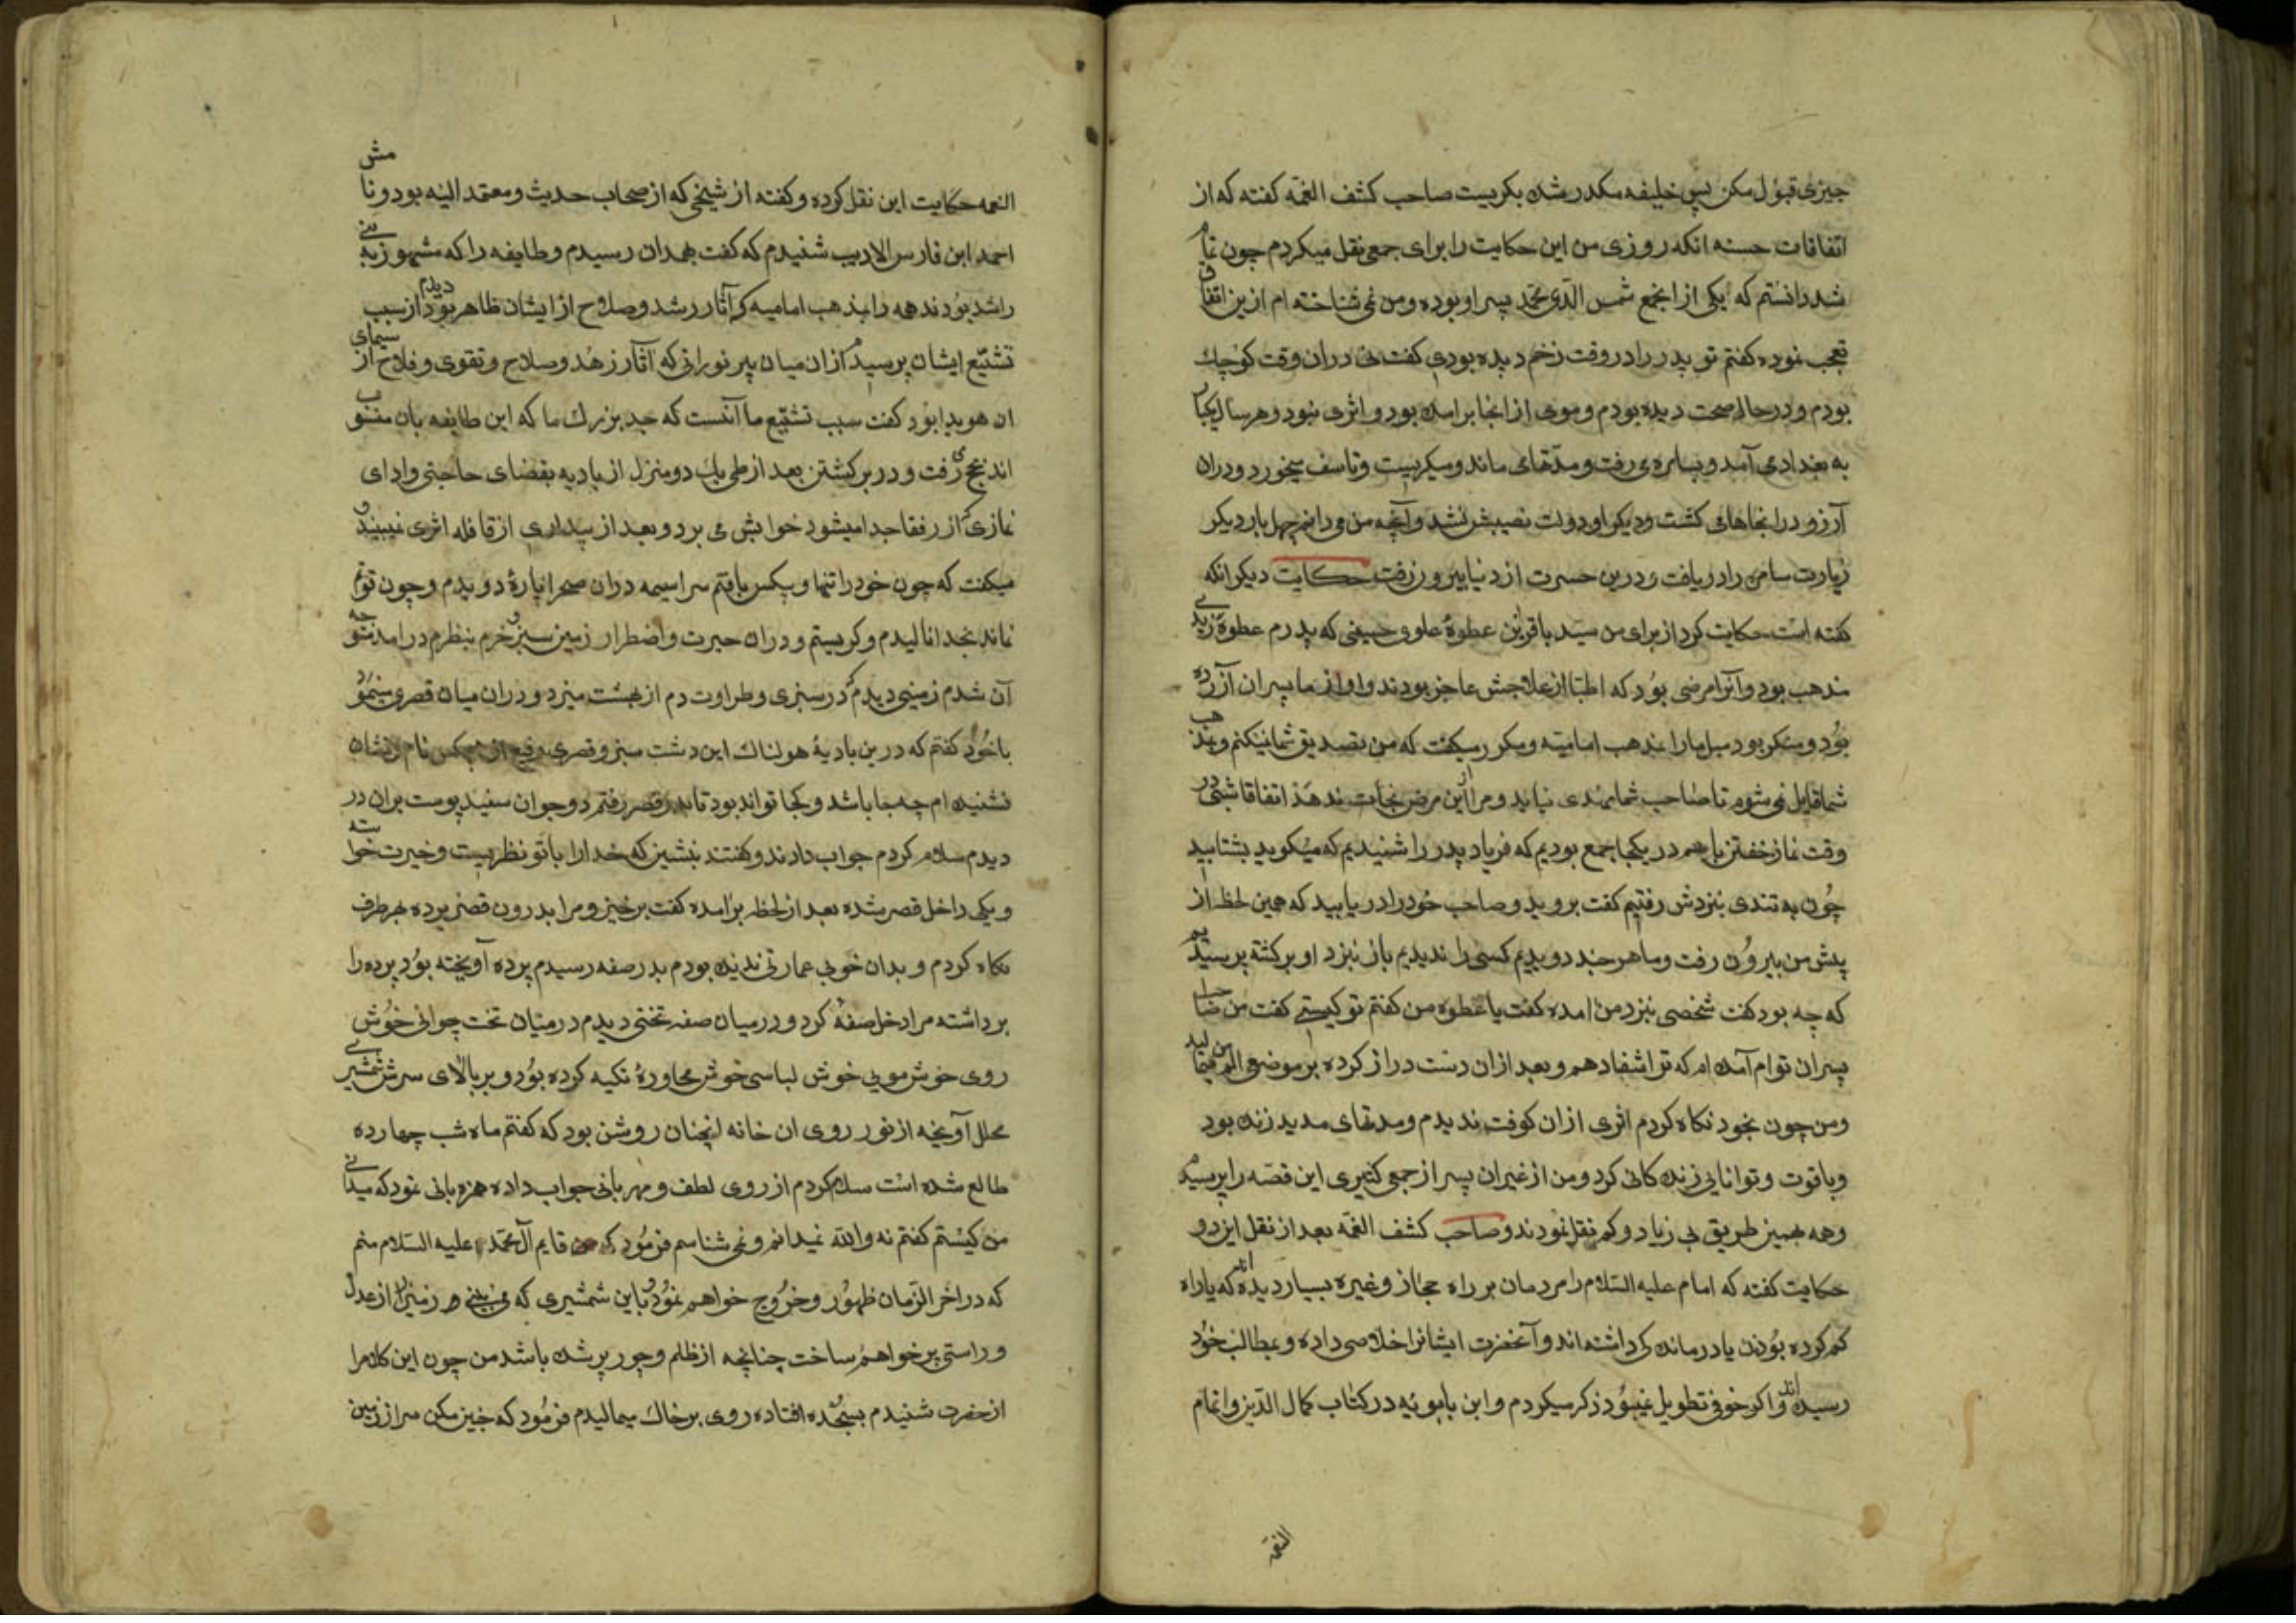 چیزی قبول مکن پس خلیفه مکدر شده بکریست صاحب کشف الغمّه کفته که از
اتفاقات حسنه انکه روزی من این حکایت را برای جمعی نقل میکردم چون تمام
شد دانستم که یکی از انجمع شمس الدّی محمّد پسر او بوده و من نمی شناخته ام ازین اتفاق
تعجب نموده کفتم تو پدر را در وقت زخم دیده بودی کفت نی دران وقت کوچک
بودم و در حال صحت دیده بودم و موی از انجا برامده بود و اثری نبود و هر سال یکبار
به بغداد می آمد و بسامره می رفت و مدّتهای ماند و میکریست و تاسف میخورد و دران
آرزو در انجاهای کشت و دیکر او دولت نصیبش نشد و آنچه من می دانم چهل بار دیکر
زیارت سامره را دریافت و درین حسرت از دنیا بیرون رفت حکایت دیکر انکه
کفته است حکایت کرد از برای من سید باقربن عطوهٔ علوی حسینی که پدرم عطوه زیدی
مذهب بود و آنرا مرضی بود که اطبّا از علاجش عاجز بودند و او از ما پسران آزرده
بود و منکر بود میل ما را بمذهب امامیّه و مکرر میکفت که من تصدیق شما نیکنم و بمذهب
شما قایل نمی شوم تا صاحب شما مهدی نیاید و مرا ازین مرض نجات ندهد اتفاقا شبی در
وقت نماز خفتن باهم در یکجا جمع بودیم که فریاد پدر را شنیدیم که میکوید بشتابید
چون به تندی بنزدش رفتیم کفت بروید و صاحب خود را دریابید که همین لحظه از
پیش من بیرون رفت و ما هر چند دویدیم کسی را ندیدیم باز بنزد او برکشته پرسیدیم
که چه بود کفت شخصی بنزد من امده کفت یا عطوه من کفتم تو کیستی کفت من صاحب
پسران توام آمده ام که ترا شفا دهم و بعد ازان دست دراز کرده بر موضع الم من مالید
و من چون بخود نکاه کردم اثری ازان کوفت ندیدم و مدتهای مدید زنده بود
و با قوت و توانایی زنده کانی کرد و من از غیر ان پسر از جمعی کثیری این قصه را پرسیدم
و همه بهمین طریق بی زیاد و کم نقل نمودند و صاحب کشف الغمّه بعد از نقل این دو
حکایت کفته که امام علیه السّلام را مردمان بر راه حجاز و غیره بسیار دیده اند که یا راه
کم کرده بودن یا درماندکی داشته اند و آنحضرت ایشانرا خلاصی داده و بمطالب خود
رسیده اند و اکر خوف تطویل نمیبود ذکر میکردم و ابن بابویه در کتاب کمال الدّین و اتمام
النعمه
النعمه حکایت این نقل کرده و کفته از شیخی که از صحاب حدیث و معتمد الیه بود و نامش
احمد ابن فارس الادیب شنیدم که کفت بهمدان رسیدم و طایفه را که مشهور به بنی
راشد بودند همه را بمذهب امامیه که آثار رشد و صلاح از ایشان ظاهر بود دیدم از سبب
تشیّع ایشان پرسیدم ازان میان پیر نورانی که آثار زهد و سلاح و تقوی و فلاح از سیمای
ان هویدا بود کفت سبب تشیّع ما آنست که جد بزرک ما که این طایفه بان منسوب
اند بحج رفت و در برکشتن بعد از طی یک دو منزل از بادیه بقضای حاجتی و ادای
نمازی از رفقا جدا میشود خوابش می برد و بعد از بیداری از قافله اثری نمیبیند و
میکفت که چون خود را تنها و بیکس یافتم سراسیمه دران صحرا پارهٔ دویدم و چون توانم
نماند بخدا نالیدم و کریستم و دران حیرت و اضطرار زمین سبز و خرم بنظرم درامد متوجه
آن شدم زمینی دیدم که در سبزی و طراوت دم از بهشت میزد و دران میان قصری مینمود
باخود کفتم که درین بادیهٔ هولناک این دشت سبز و قصری رفیع از هیچکس نام و نشان
نشنیده ام چه جا باشد و کجا تواند بود تا بدر قصر رفتم دو جوان سفید پوست بران در
دیدم سلام کردم جواب دادند و کفتند بنشین که خدا را با تو نظریست و خیرت خواسته
و یکی داخل قصر شده بعد از لحظه برامده کفت برخیز و مرا بدرون قصر برده بهر طرف
نکاه کردم و بدان خوبی عمارتی ندیده بودم بدر صفه رسیدم پرده آویخته بود پرده را
برداشته مرا دخل صفه کرد و در میان صفه تختی دیدم در میان تخت جوانی خوش
روی خوش مویی خوش لباسی خوش محاورهٔ تکیه کرده بود و بر بالای سرش شمشیری
محلل آویخته از نور روی ان خانه انچنان روشن بود که کفتم ماه شب چهارده
طالع شده است سلام کردم از روی لطف و مهربانی جواب داده همزبانی نمود که میدانی
من کیستم کفتم نه والله نمیدانم و نمی شناسم فرمود که من قایم آل محمّد علیه السّلام منم
که در اخر الزّمان ظهور و خروج خواهم نمود و باین شمشیری که می بینی و زمین را از عدل
و راستی پر خواهم ساخت چنانچه از ظلم و جور پر شده باشد من چون این کلام را
از حضرت شنیدم بسجده افتاده روی بر خاک میمالیدم فرمود که چنین مکن سر از زمین